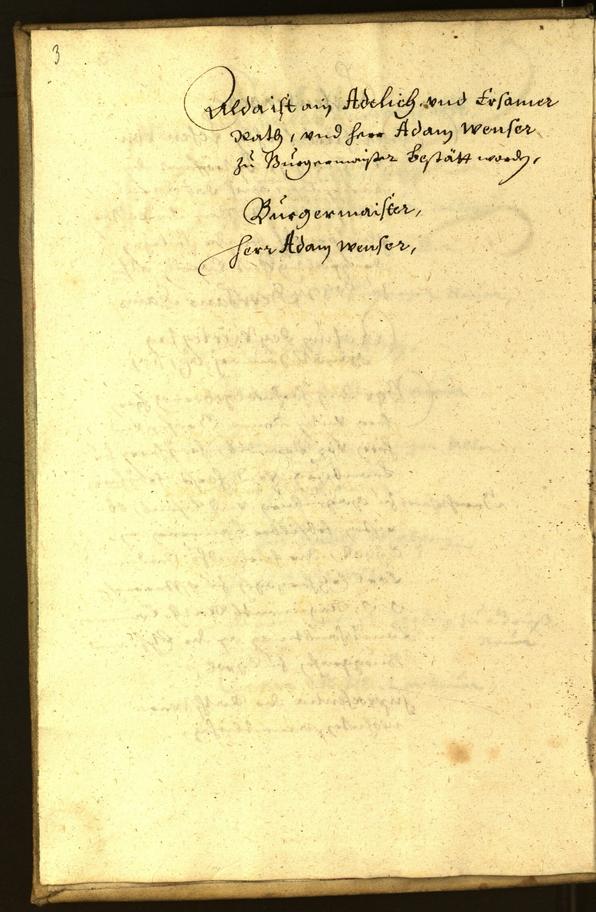 3
Alda ist ain Adelich und Ersamer
Rath, und herr Adam Wenser
zu Burgermaister bestätt worden,
Burgermaister,
herr Adam Wenser,